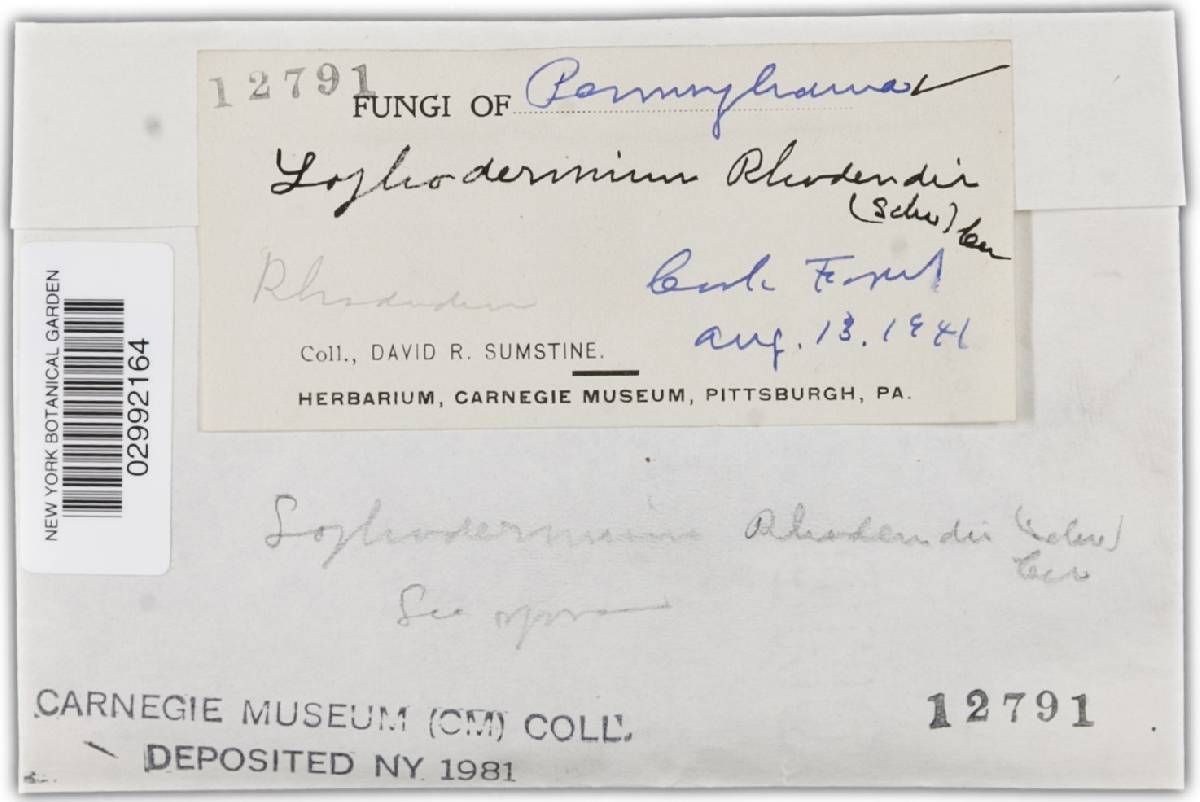 12791
FUNGI OF Pennsylvania
Lophodermium Rhodendri
(Schw) Ces
Cook Forest
Rhododen
Aug. 13. 1941
Coll., DAVID R. SUMSTINE.
HERBARIUM, CARNEGIE MUSEUM, PITTSBURGH, PA.
NEW YORK BOTANICAL GARDEN
02992164
Lophodermium Rhodendri (Schw)
Ces
See
CARNEGIE MUSEUM (CM) COLL.
DEPOSITED NY 1981
12791